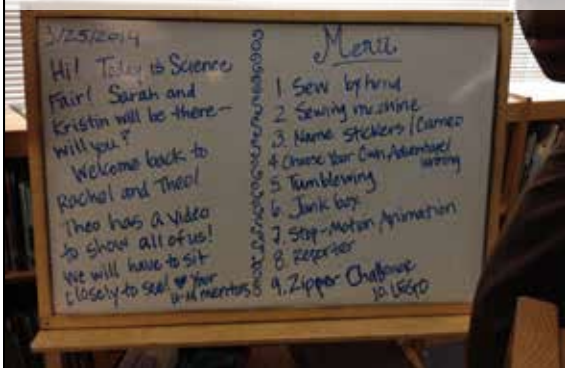 3/25/2014
Hi! Today is Science
Fair! Sarah and
Kristin will be there—
will you?
Welcome back to
Rachel and Theo!
Theo has a video
to show all of us!
We will have to sit
closely to see! ♥ Your
U-M mentors
Menu
1 Sew by hand
2 Sewing machine
3. Name Stickers/Cameo
4 Choose Your Own Adventure/
writing
5 Tumblewing
6. Junk box
7. Stop-Motion Animation
8. Reporter
9. Zipper Challenge
10. LEGO